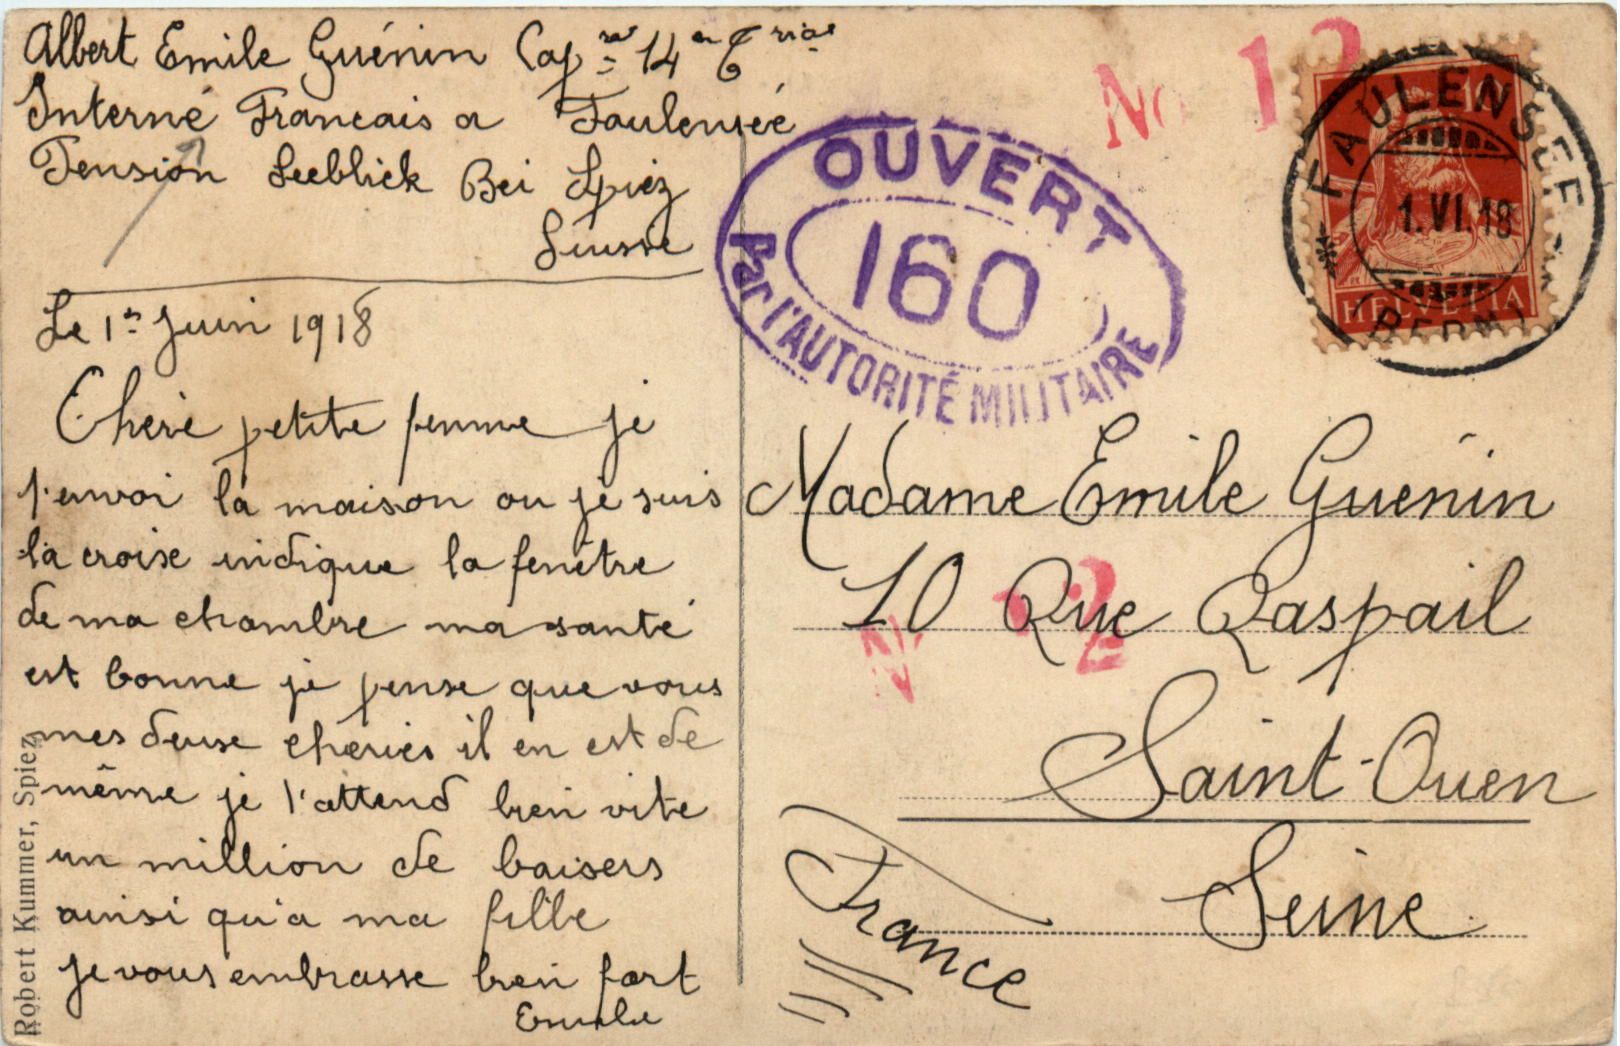 Albert Emile Guénin Cap ral 14 en Trial
Interné Francais a Faulensée
Pension Seeblick Bei Spiez
Suisse
Le 1er Juin 1918
Cheré petite femme je
t'envoi la maison ou je suis
la croise indique la fenêtre
de ma chambre ma santé
est bonne je pense que vous
mes deuse cheries il en est de
même je t'attend bien vite
un million de baisers
ainsi qu'a ma fille
je vous embrasse bien fort
Emile
Robert Kummer, Spiez
OUVERT
160
Par l'AUTORITÉ MILITAIRE
No 12
FAULENSEE
1.VI.18
(BERN)
10
HELVETIA
Madame Emile Guenin
10 Rue Raspail
N 2
Saint-Ouen
Seine
France